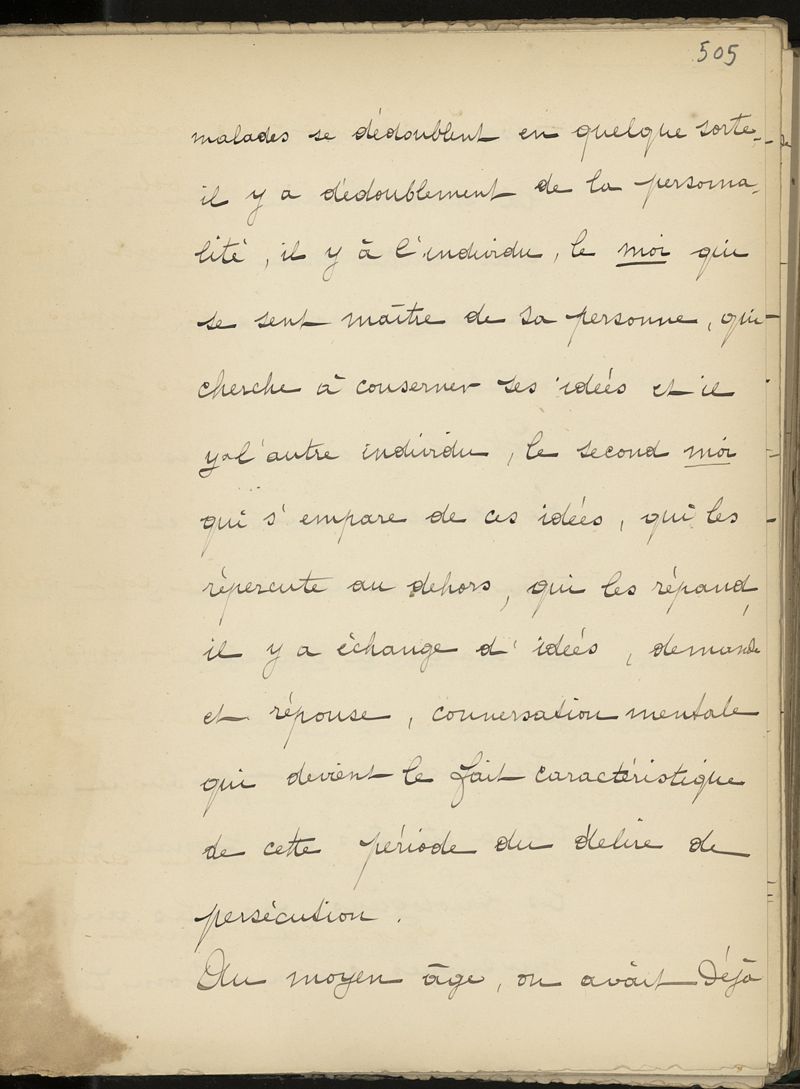 505
malades se dédoublent en quelque sorte,
il y a dédoublement de la personna-
lité, il y à l'individu, le moi qui
se sent maître de sa personne, qui
cherche à conserver ses idées et il
y a l'autre individu, le second moi
qui s'empare de ces idées, qui les
répercute au dehors, qui les répand,
il y a échange d'idées, demande
et réponse, conversation mentale
qui devient le fait caractéristique
de cette période du délire de
persécution.
Au moyen âge, on avait déjà